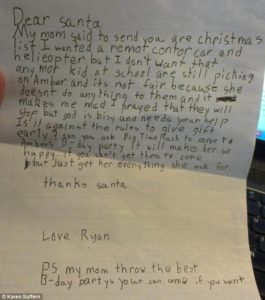 Dear santa
My mom said to send you are christmas
list I wanted a remot contor car and
helicopter but I don't want that
any mor kid at school are still picking
on Amber and its not fair because she
doesnt do anything to them and it
makes me mad I prayed that they will
stop but god is bisy and needs your help
Is it against the rules to give gift
early? can you ask Big Time Rush to come to
Amber's B-day party it will make her so
happy. If you can't get them to come
just get her everything she ask for.
thanks santa
Love Ryan
PS my mom throw the best
B-day partys your can come if you want
© Karen Suffern